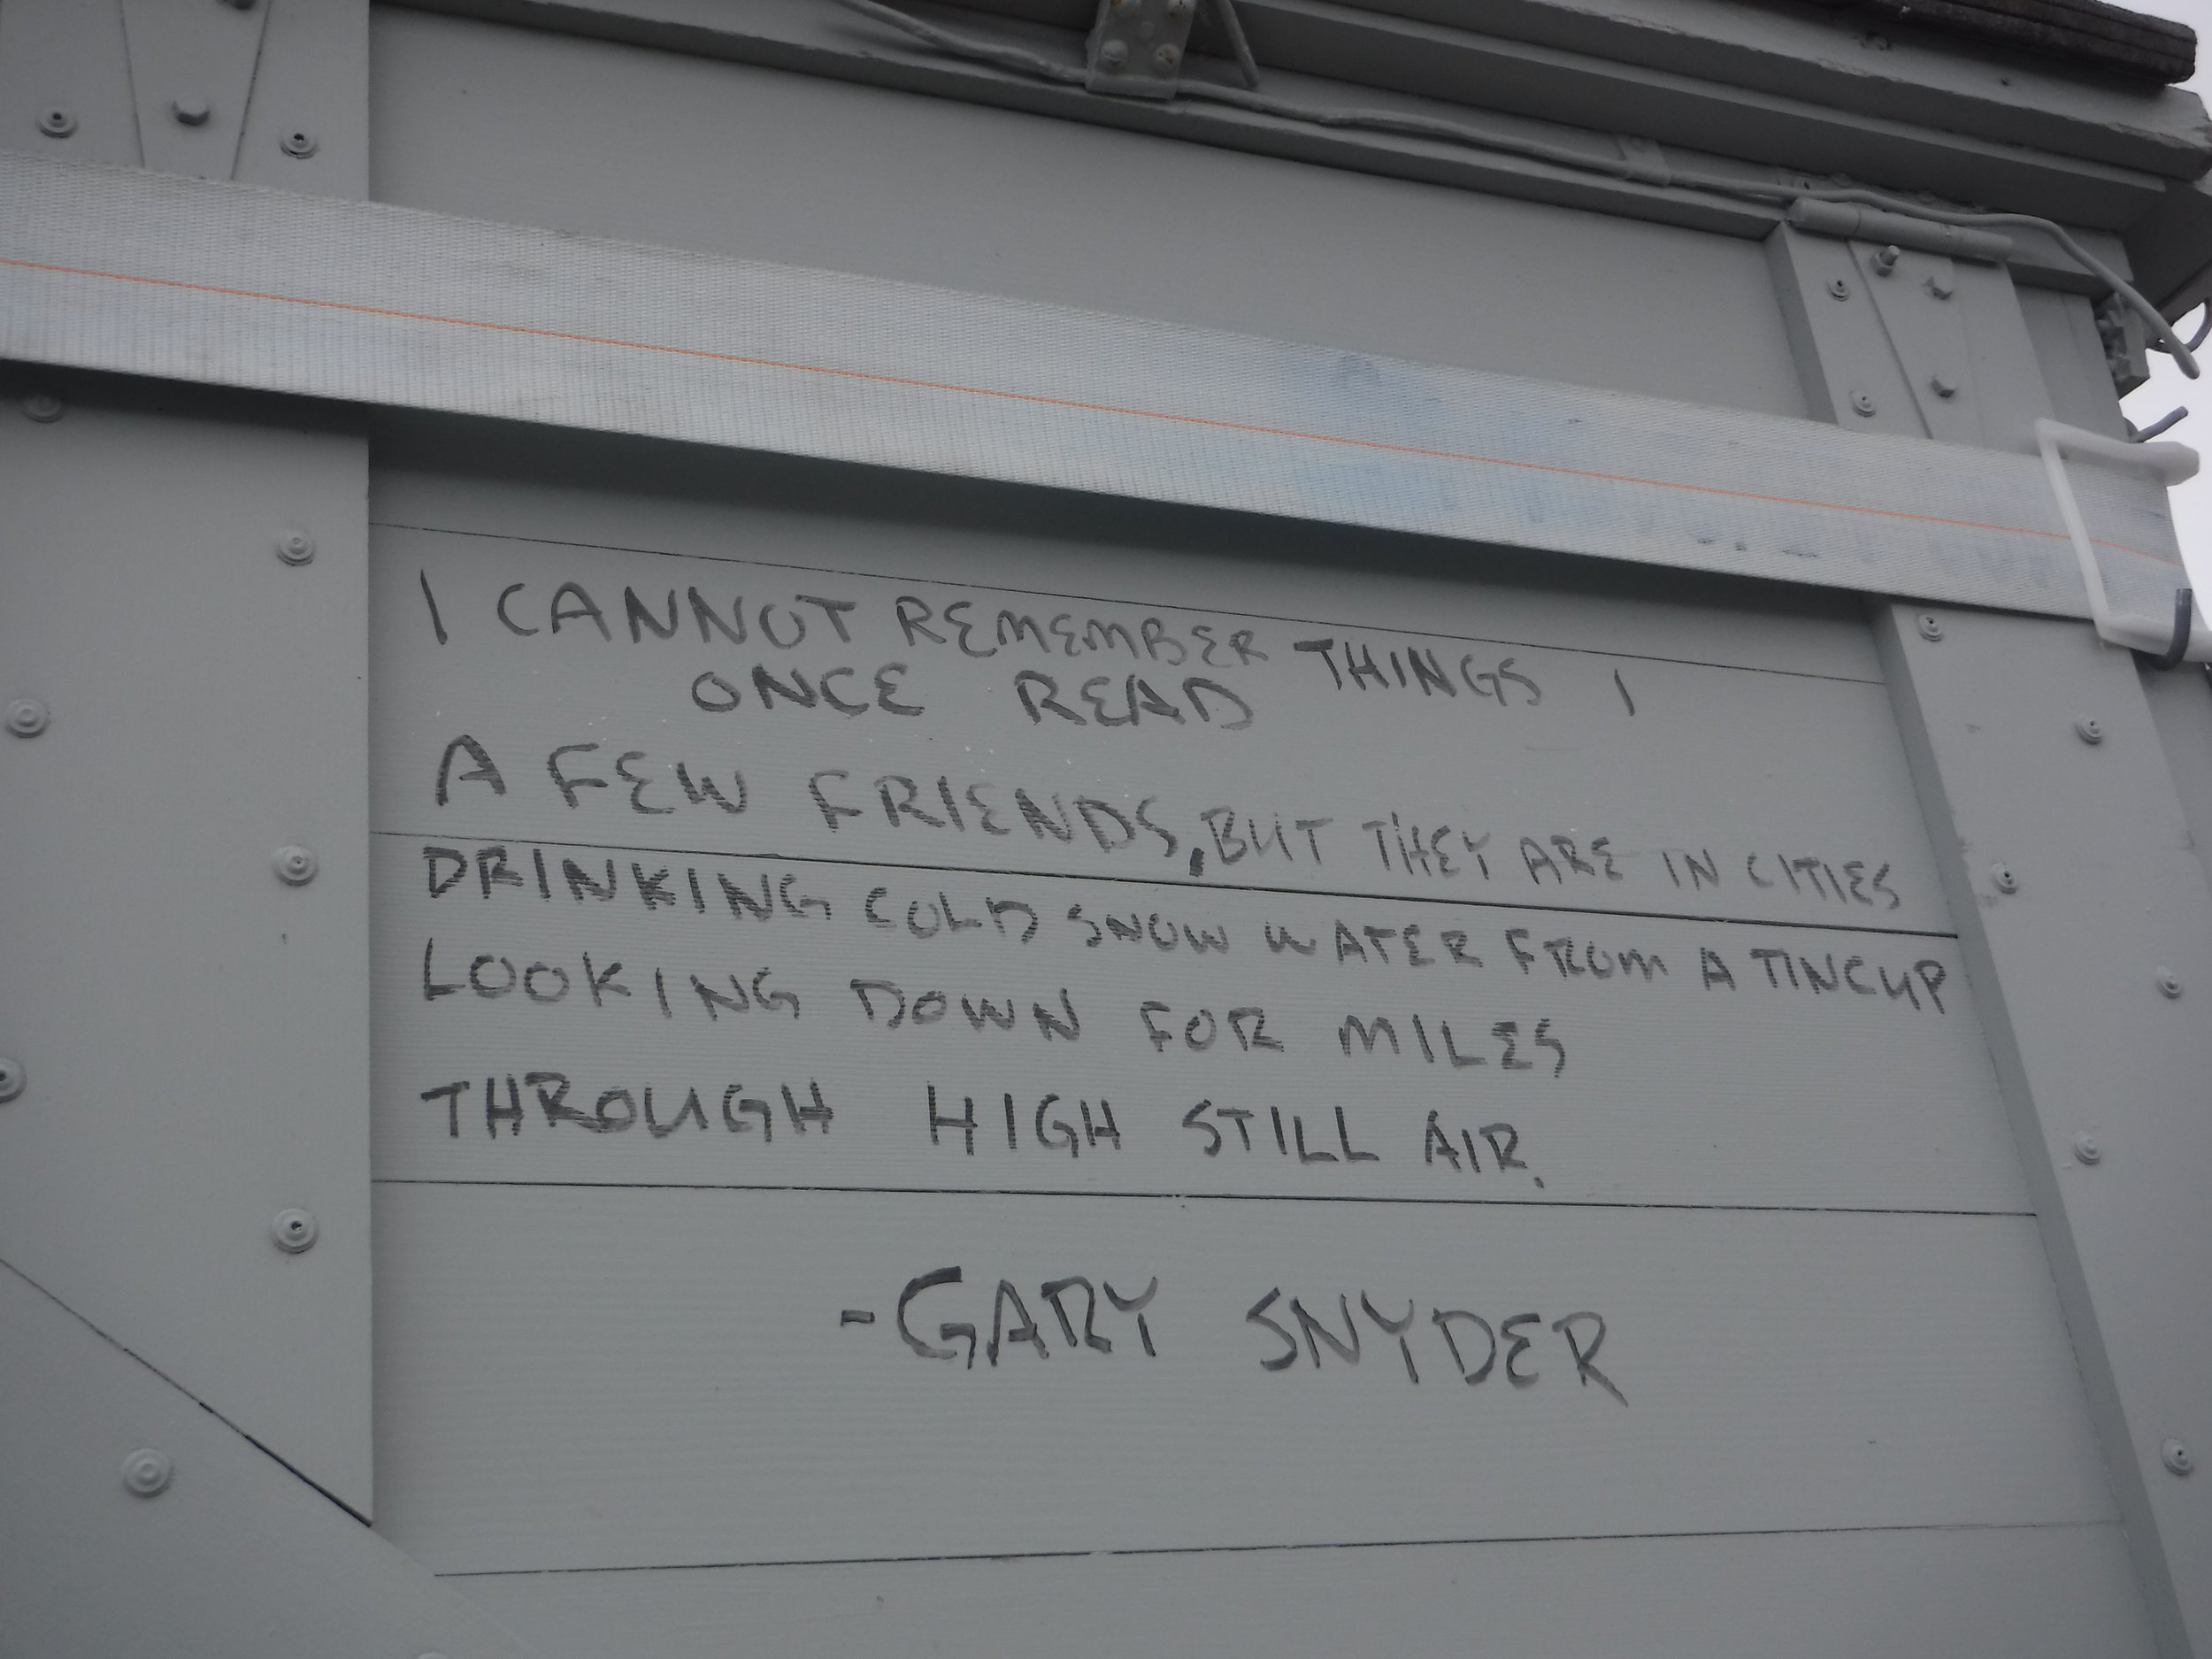 I CANNOT REMEMBER THINGS I
ONCE READ
A FEW FRIENDS, BUT THEY ARE IN CITIES
DRINKING COLD SNOW WATER FROM A TINCUP
LOOKING DOWN FOR MILES
THROUGH HIGH STILL AIR.
-GARY SNYDER